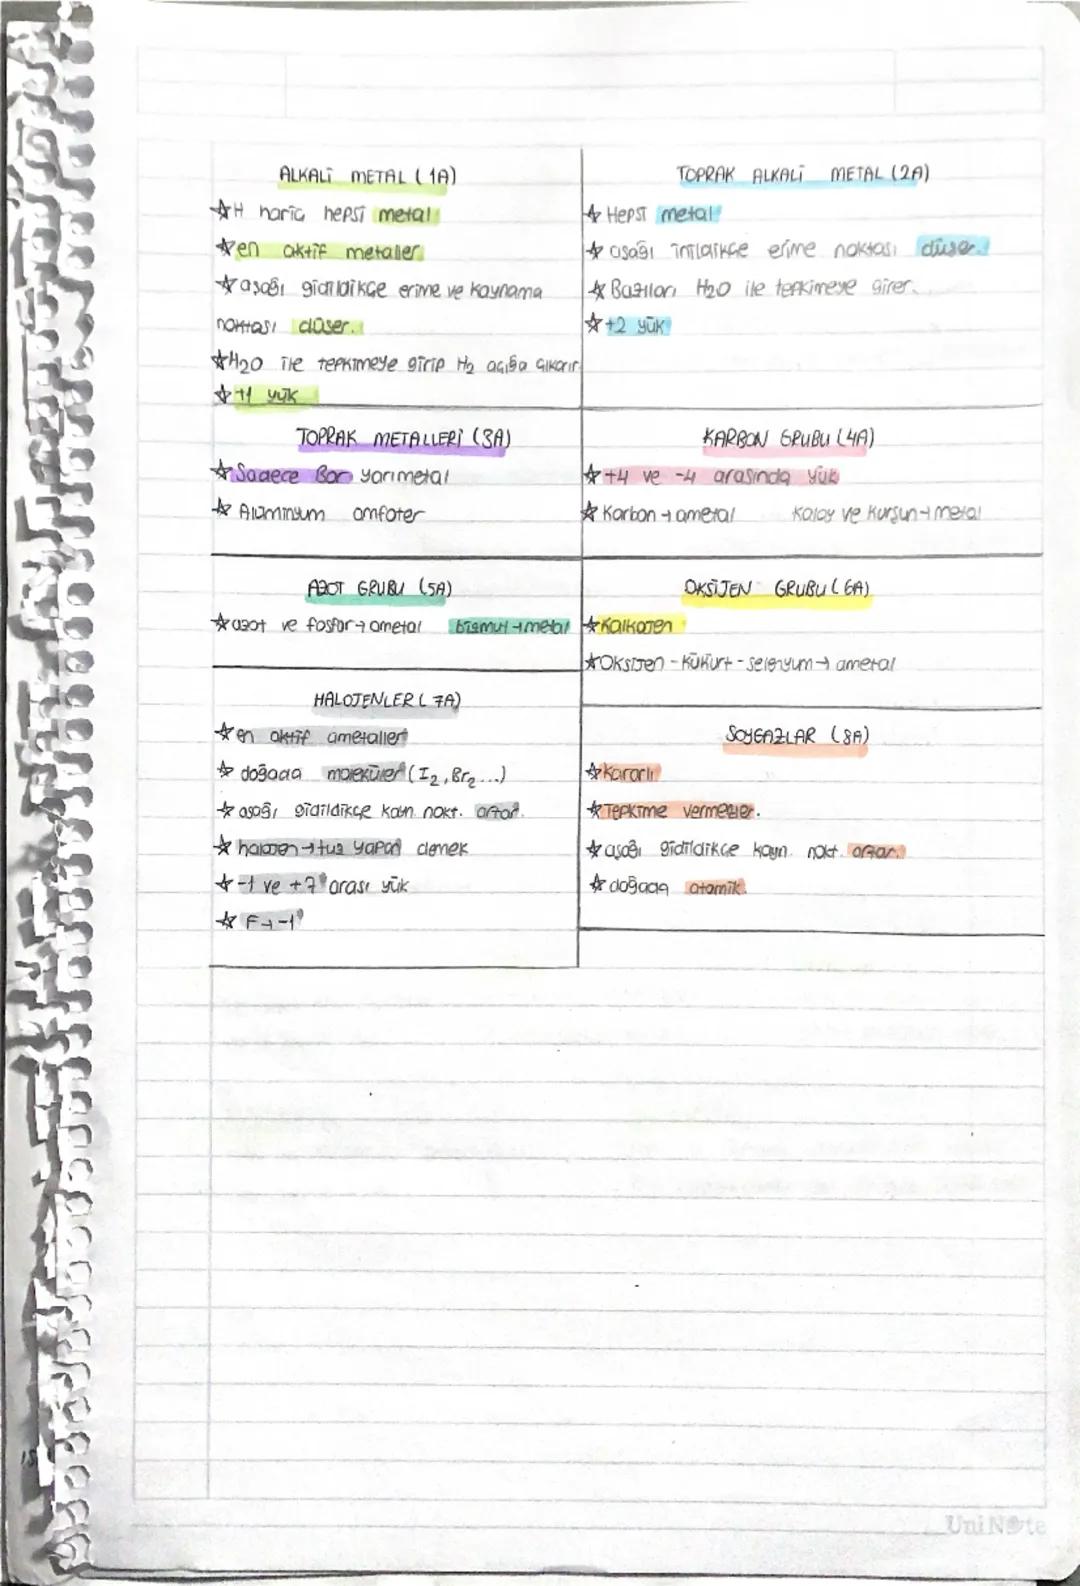 ALKALİ METAL (1A)
☆H hariç hepsi metal
☆en aktif metaller
☆aşağı gidildikçe erime ve kaynama
noktası düşer.
☆H2O ile tepkimeye girip H2 açığa çıkarır
☆+1 yük
TOPRAK ALKALİ METAL (2A)
☆Hepsi metal
☆aşağı inildikçe erime noktası düşer.
☆Bazıları H2O ile tepkimeye girer.
☆+2 yük
TOPRAK METALLERİ (3A)
☆Sadece Bor yarımetal
☆Alüminyum amfoter
KARBON GRUBU (4A)
☆+4 ve -4 arasında yük
☆Karbon→ametal Kalay ve Kurşun→metal
AZOT GRUBU (5A)
☆azot ve fosfor→ametal bizmut→metal
OKSİJEN GRUBU (6A)
☆Kalkojen
☆Oksijen - Kükürt - selenyum→ ametal
HALOJENLER (7A)
☆en aktif ametaller
☆doğada moleküler (I2, Br2 ...)
☆aşağı gidildikçe kayn. nokt. artar.
☆halojen→tuz yapan demek
☆-1 ve +7 arası yük
☆F→-1
SOYGAZLAR (8A)
☆Kararlı
☆Tepkime vermezler.
☆aşağı gidildikçe kayn. nokt. artar.
☆doğada atomik.
UniNote